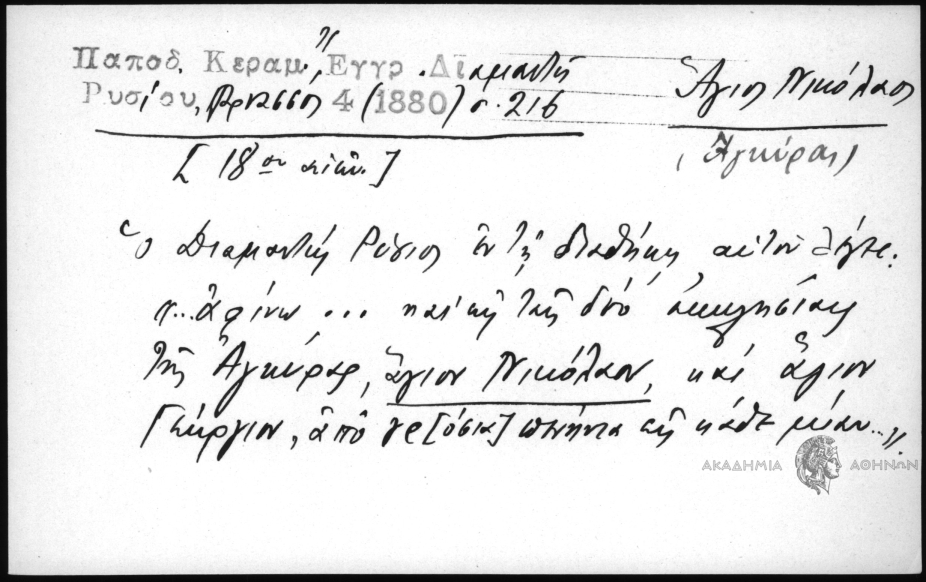 Παποδ. Κεραμ., Ἔγγρ. Διαμαντῆ
Ρυσίου, Παρνασσος 4 (1880) σ. 216
Ἅγιος Νικόλαος
(Ἀγκύρας)
[18ου αἰών.]
Ὁ Διαμαντῆς Ρύσιος ἐν τῇ διαθήκῃ αὐτοῦ λέγει:
"..ἀφίνω ... καὶ εἰς τὰς δύο ἐκκλησίας
τῆς Ἀγκύρας, ἅγιον Νικόλαον, καὶ ἅγιον
Γεώργιον, ἀπὸ γρ[όσια] πενήντα εἰς κάθε μίαν..."
ΑΚΑΔΗΜΙΑ ΑΘΗΝΩΝ